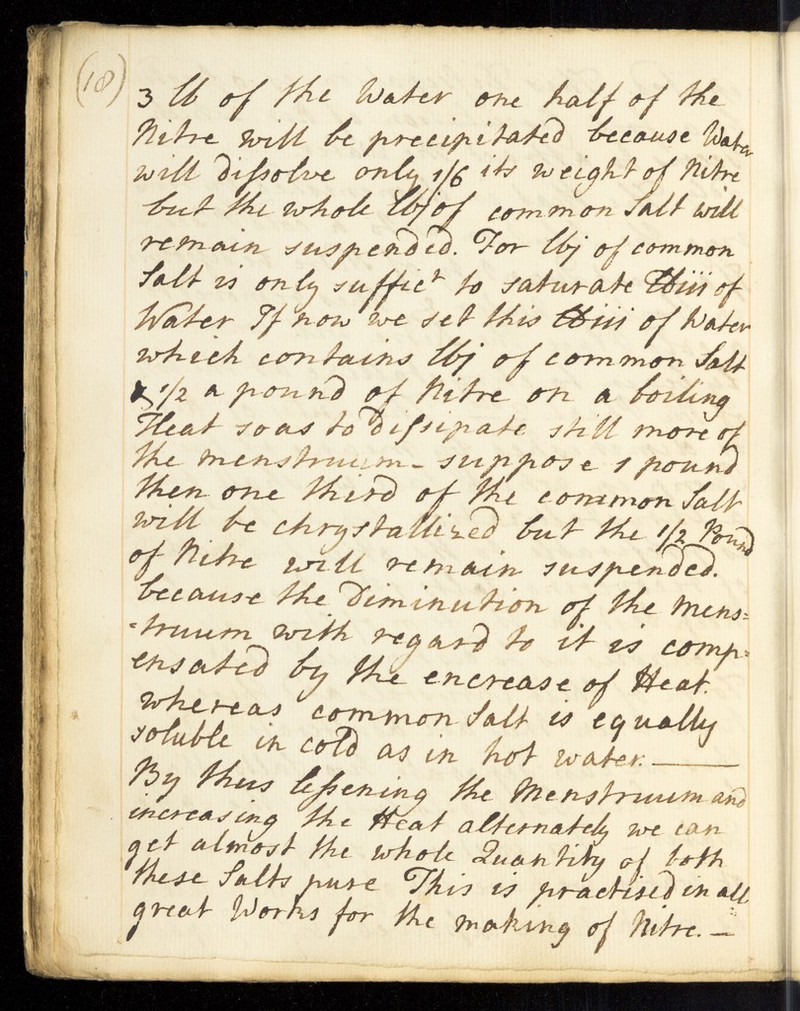 (18)
3 lb of the Water one half of the
Nitre will be precipitated because Water
will dissolve only 1/6 its weight of Nitre
but the whole lbj of common Salt will
remain suspended. For lbj of common
Salt is only suffict to saturate lbiii of
Water If now we set this lbiii of Water
which contains lbj of common Salt
& 1/2 a pound of Nitre on a boiling
Heat so as to dissipate still more of
the menstruum - suppose 1 pound
then one third of the common Salt
will be chrystallized but the 1/2 Pound
of Nitre will remain suspended.
because the Diminution of the mens=
=truum with regard to it is comp=
ensated by the encrease of Heat.
whereas common Salt is equally
soluble in cold as in hot water. —
By thus lessening the Menstruum and
increasing the Heat alternately we can
get almost the whole Quantity of both
these Salts pure This is practised in all
great Works for the making of Nitre. —